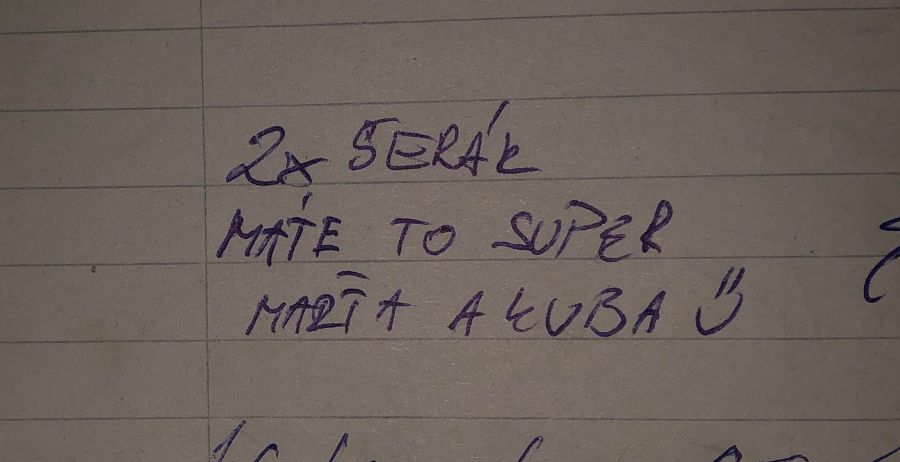 2x ŠERÁK
MÁTE TO SUPER
MARŤA A KUBA